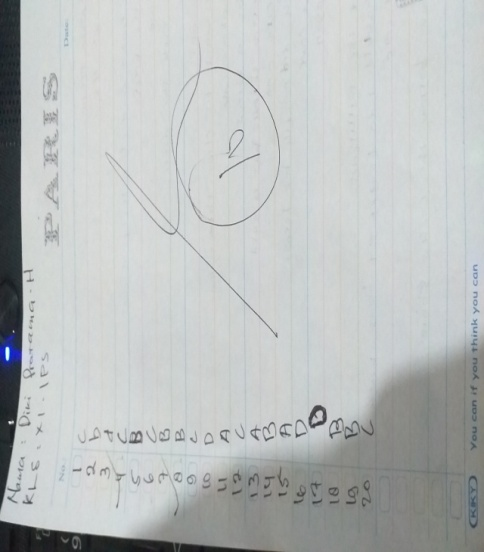 Nama : Diki Pratama . H
KLS : XI . IPS
PARIS
No. Date:
1 C
2 b
3 A
4 C
5 B
6 C
7 B
8 B
9 C
10 D
11 A
12 C
13 A
14 B
15 A
16 D
17 D
18 B
19 B
20 C
KIKY You can if you think you can